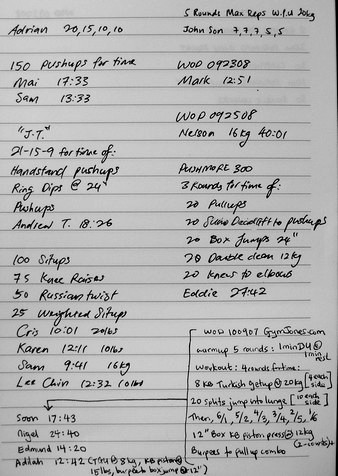 Adrian 20,15,10,10
150 pushups for time
Mai 17:33
Sam 13:33
"J.T."
21-15-9 for time of:
Handstand pushups
Ring Dips @ 24"
Pushups
Andrew T. 18:26
100 Situps
75 Knee Raises
50 Russian twist
25 Weighted Situps
Cris 10:01 20lbs
Karen 12:11 10lbs
Sam 9:41 16kg
Lee Chin 12:32 10lbs
Soon 17:43
Nigel 24:40
Edmund 14:20
Adlan 12:42 (TGU @ 8kg, KB piston @ 15lbs, burpee to box jump @ 12")
5 Rounds Max Reps W.P.U 20kg
John Son 7,7,7,5,5
WOD 092308
Mark 12:51
WOD 092508
Nelson 16kg 40:01
PUSHMORE 300
3 Rounds for time of:
20 Pullups
20 Sumo Deadlift to pushups
20 Box Jumps 24"
20 Double clean 12kg
20 knees to elbows
Eddie 27:42
WOD 100907 GymJones.com
warmup 5 rounds: 1min D4 @ 1min rest
Workout: 4 rounds for time:
8 KB Turkish getup @ 20kg [4 each side]
20 splits jump into lunge [10 each side]
Then, 6/1, 5/2, 4/3, 3/4, 2/5, 1/6
12" Box KB piston press @ 12kg
Burpees to pullup combo